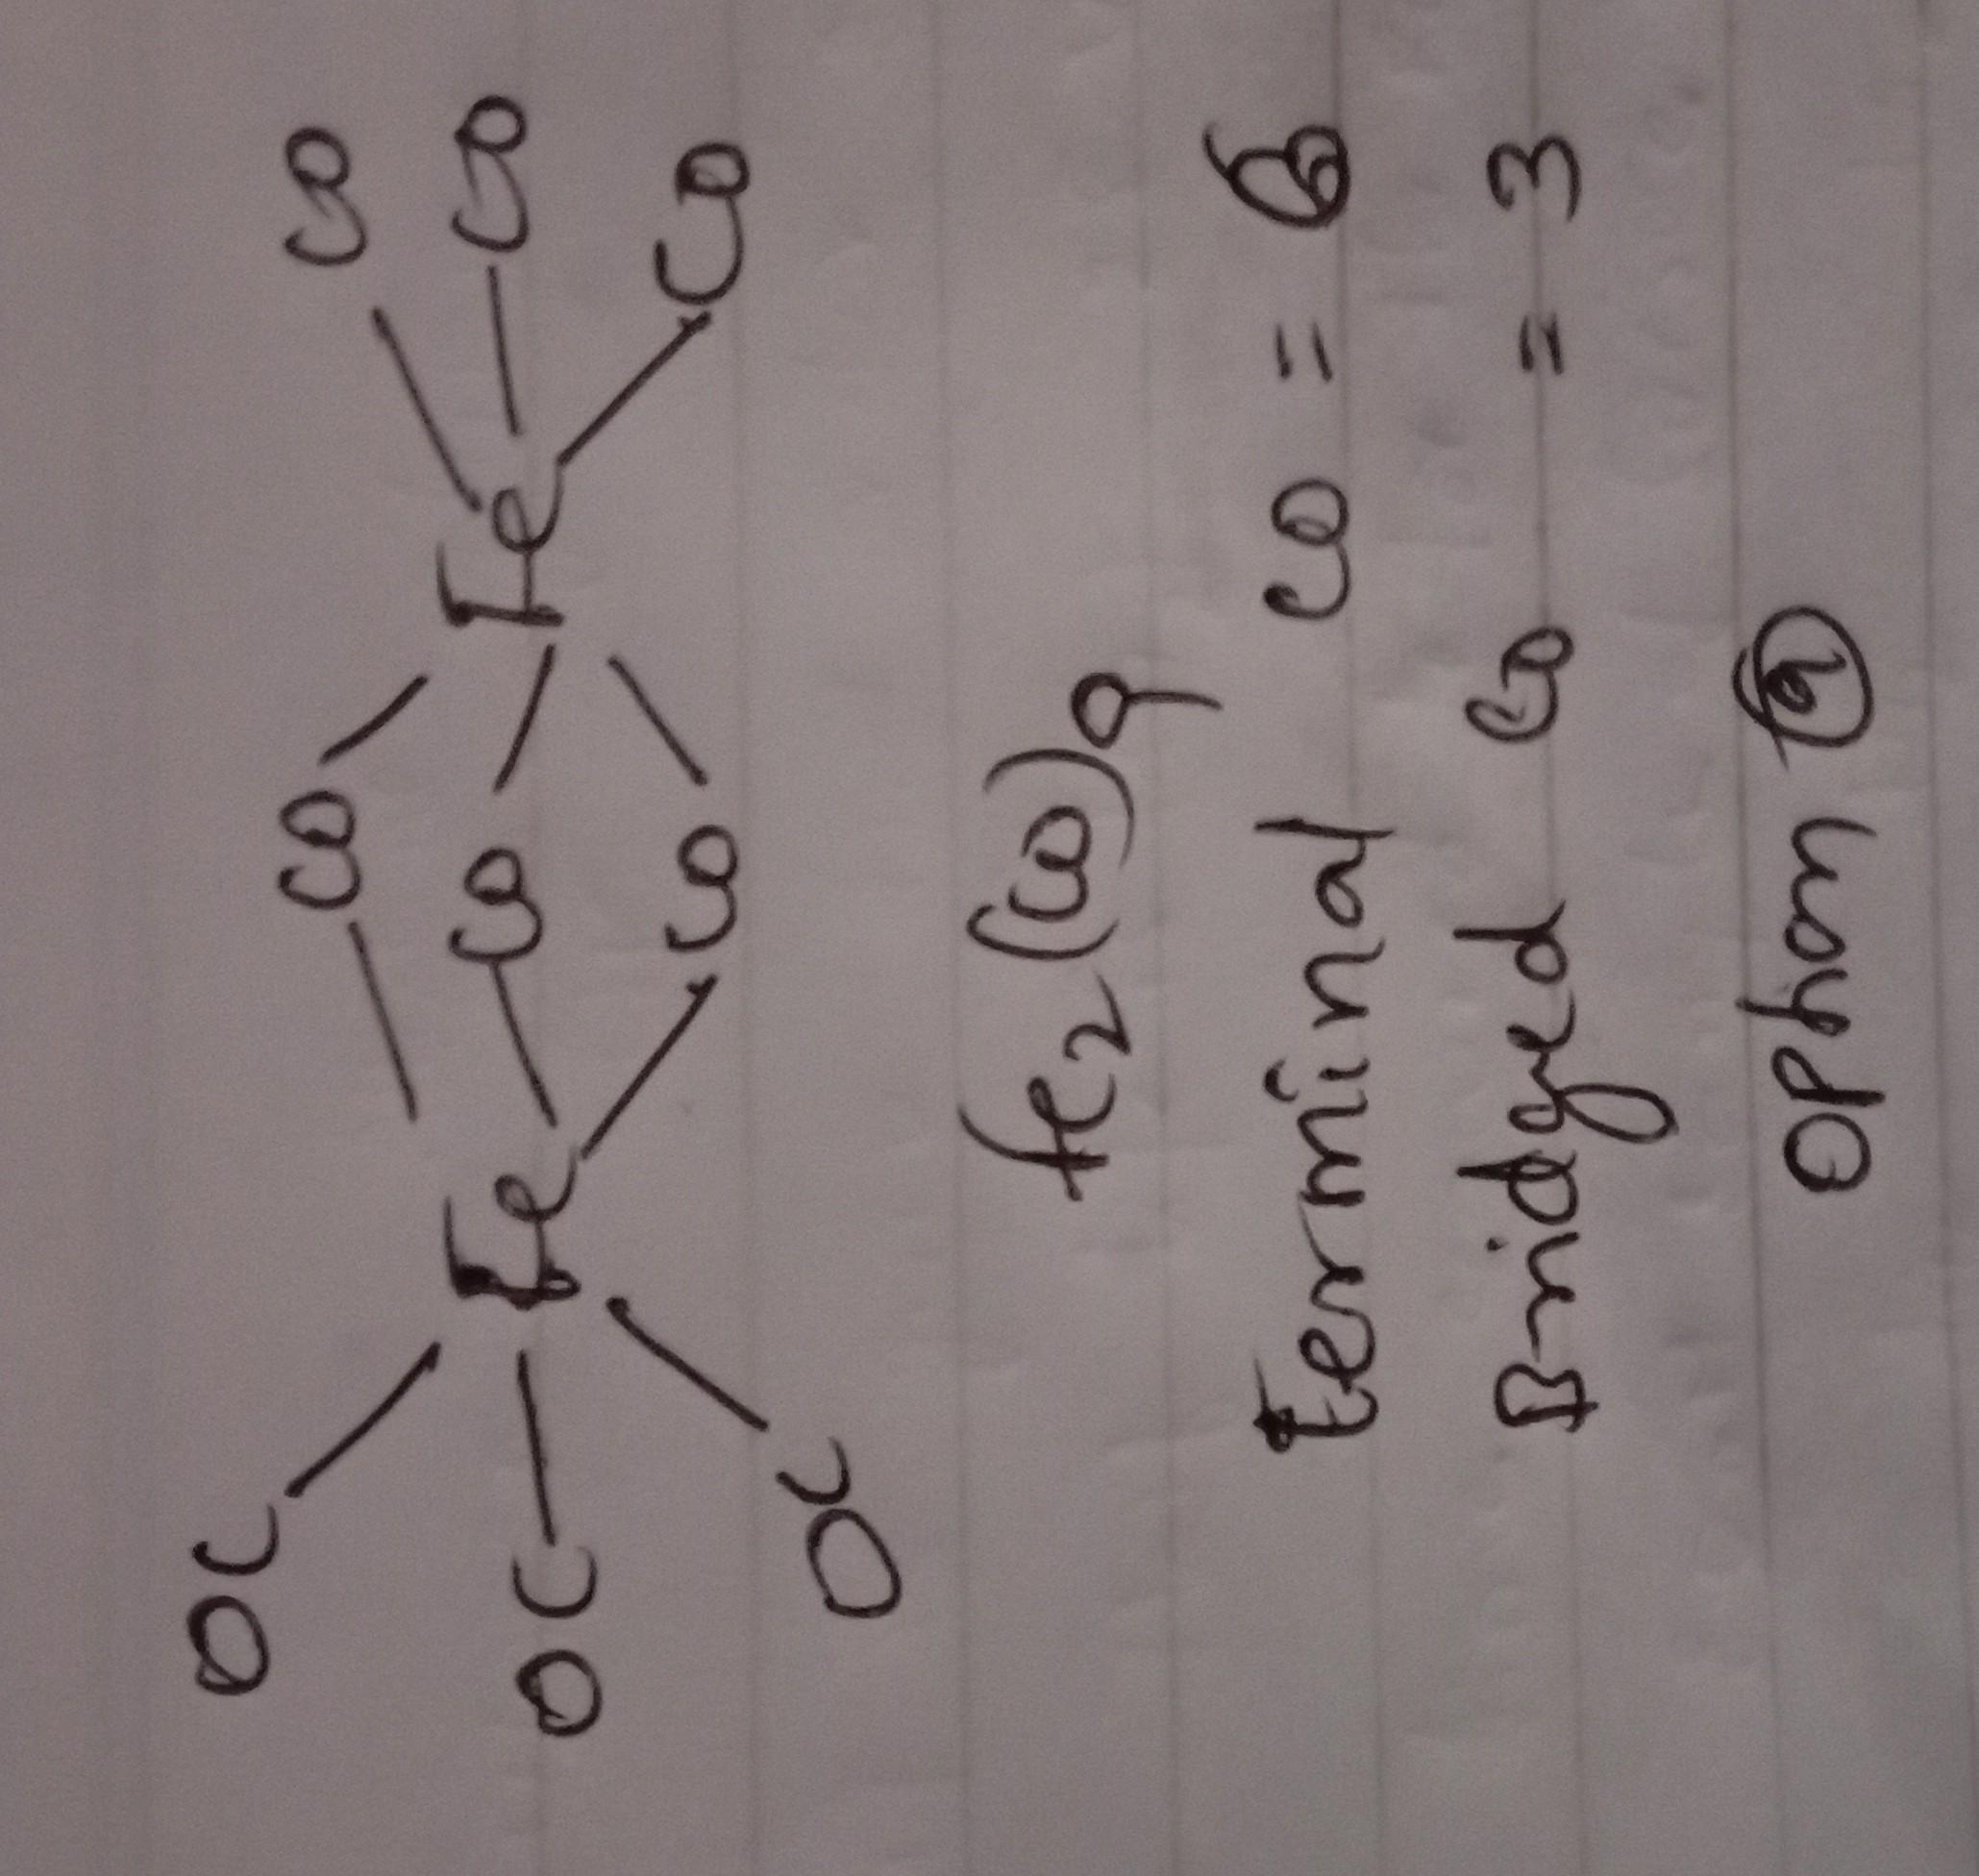 OC CO CO
OC Fe CO Fe CO
OC CO CO
Fe2(CO)9
terminal CO = 6
Bridged CO = 3
Option